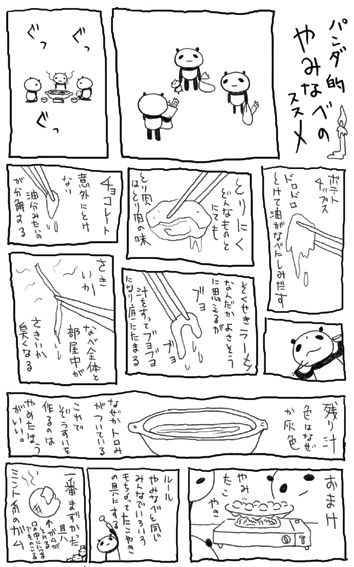 パンダ的
やみなべの
ススメ
ぐっ
ぐっ
ぐっ
ポテト
チップス
ドロドロ
とけて油がなべにしみだす
とりにく
どんなものと
にても
とり肉
はとり肉の味
チョコレート
意外にとけ
ない
油分みたいの
が分解する
そくせきラーメン
なんだかよさそう
に思えるが
汁をすってブヨブヨ
になり底にたまる
ブヨ
ブヨ
さき
いか
なべ全体と
部屋中が
さきいか
臭くなる
残り汁
色はなぜ
か灰色
なぜかトロみ
がついている
これで
ぞうすいを
作るのは
やめたほう
がいい。
あまけ
やみ
たこ
やき
ルール
やみなべと同じ
みんなでいろいろ
もちよってたこやき
の具にする
一番まずかった
具
ミント系のガム